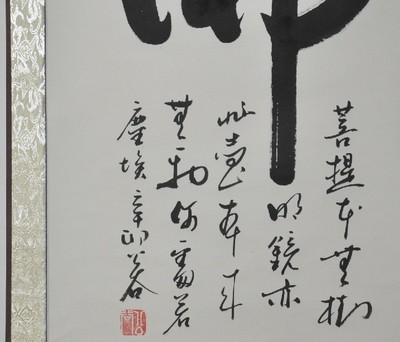 菩提本無樹
明鏡亦
非臺本來
無一物何處若
塵埃辛卯